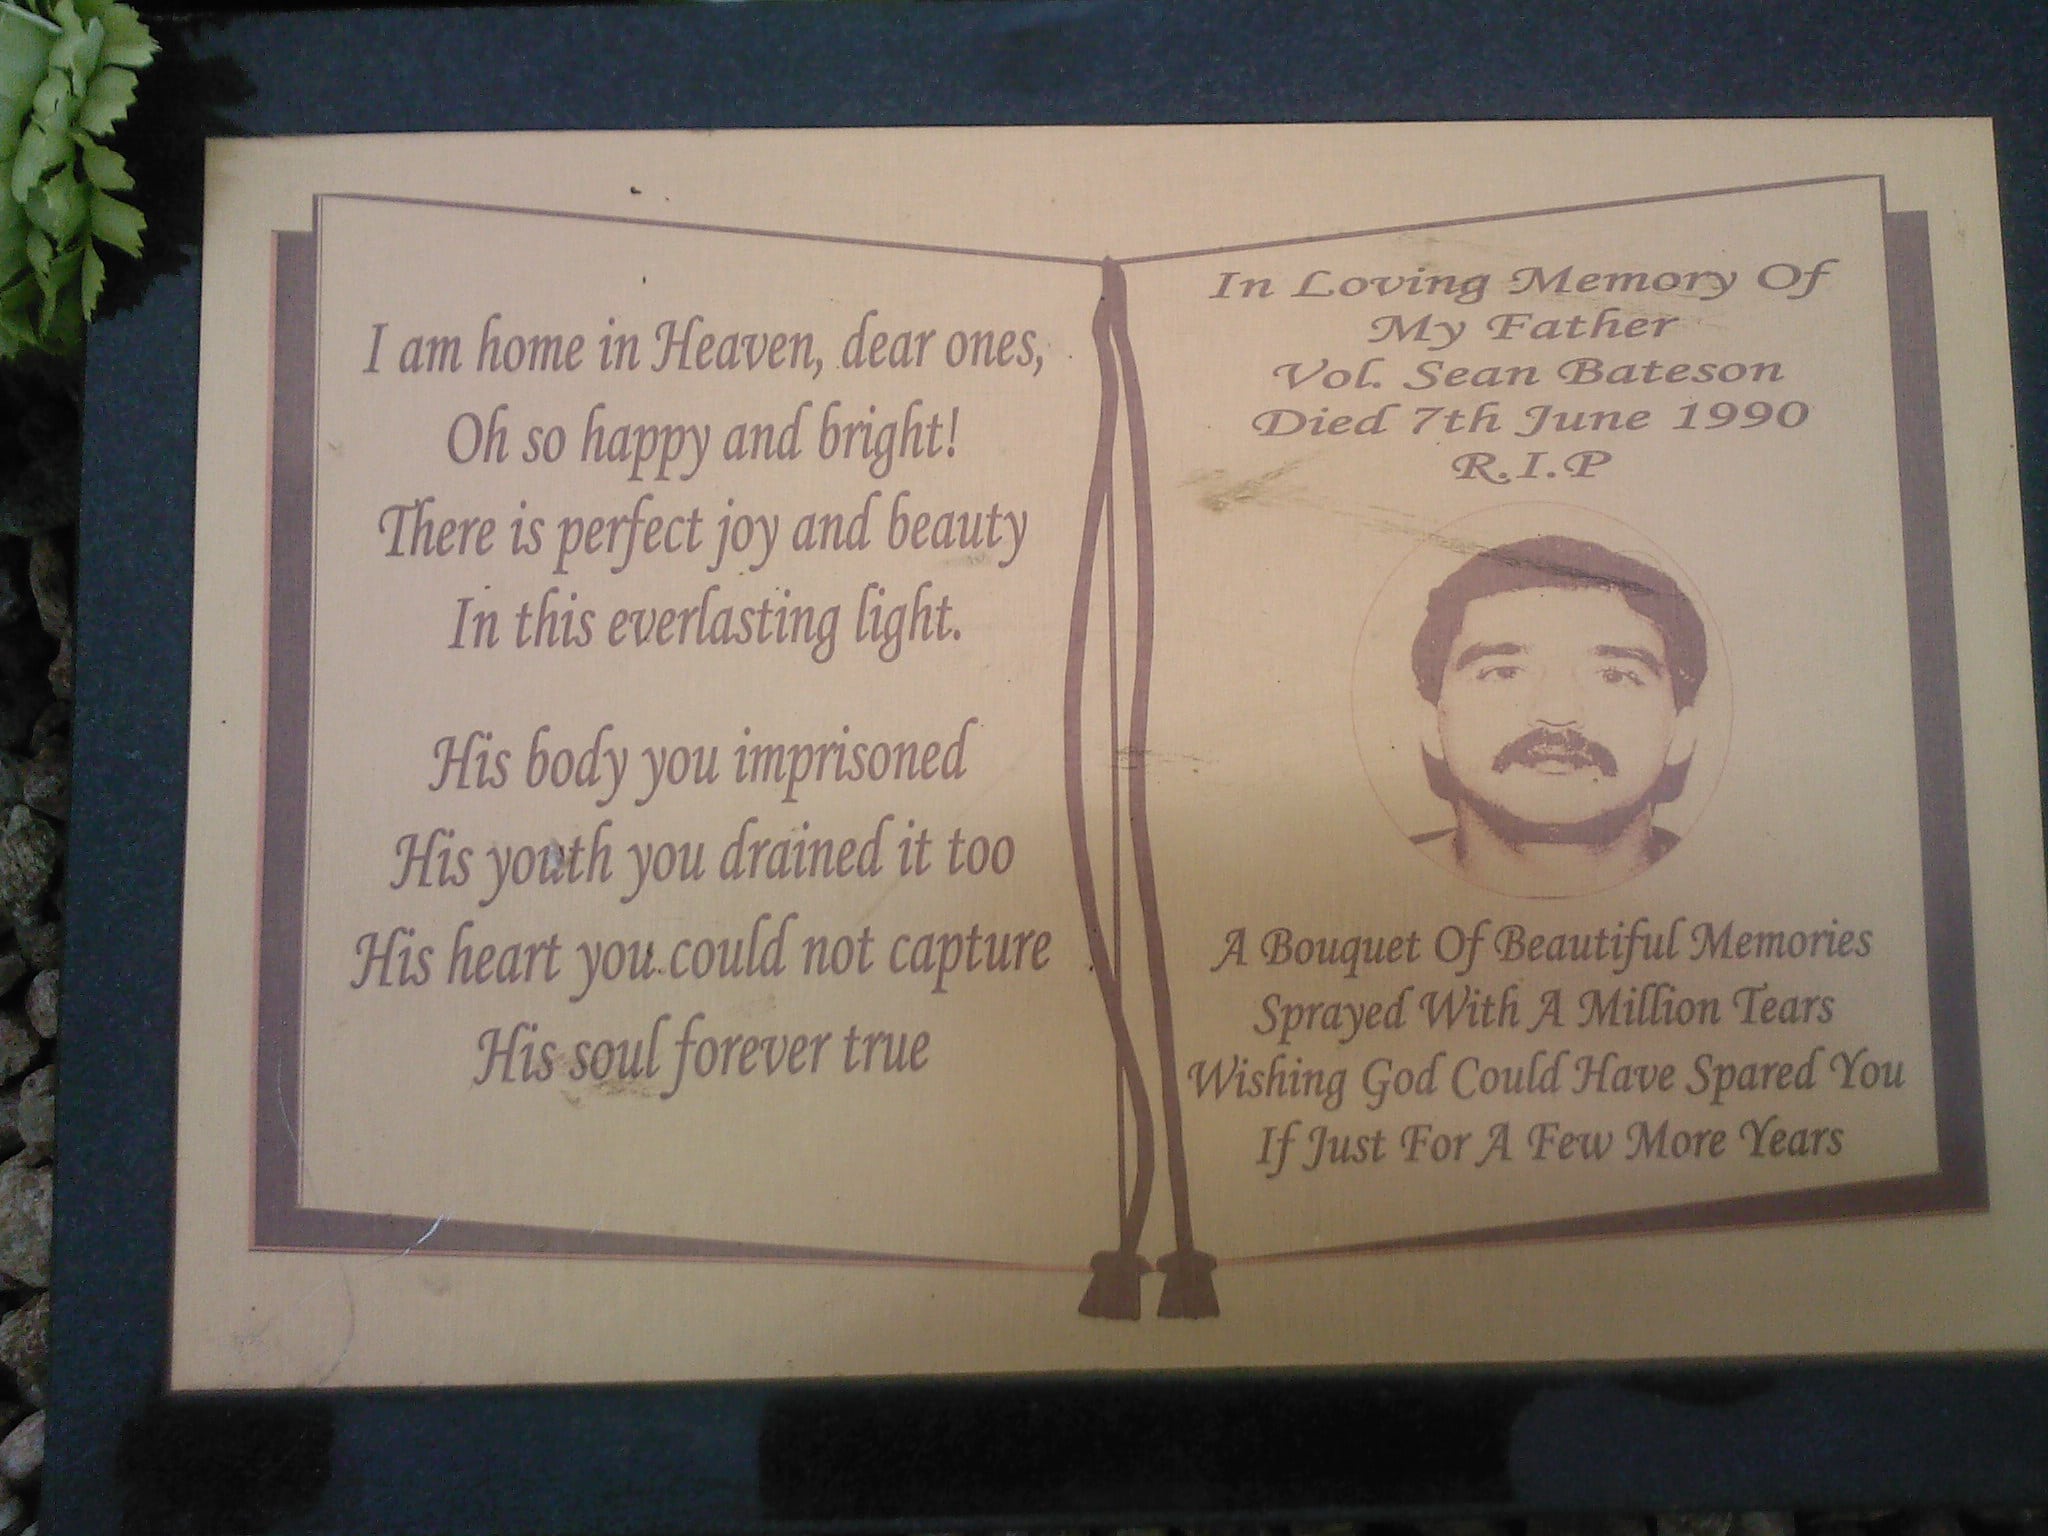 I am home in Heaven, dear ones,
Oh so happy and bright!
There is perfect joy and beauty
In this everlasting light.
His body you imprisoned
His youth you drained it too
His heart you could not capture
His soul forever true
In Loving Memory Of
My Father
Vol. Sean Bateson
Died 7th June 1990
R.I.P
A Bouquet Of Beautiful Memories
Sprayed With A Million Tears
Wishing God Could Have Spared You
If Just For A Few More Years